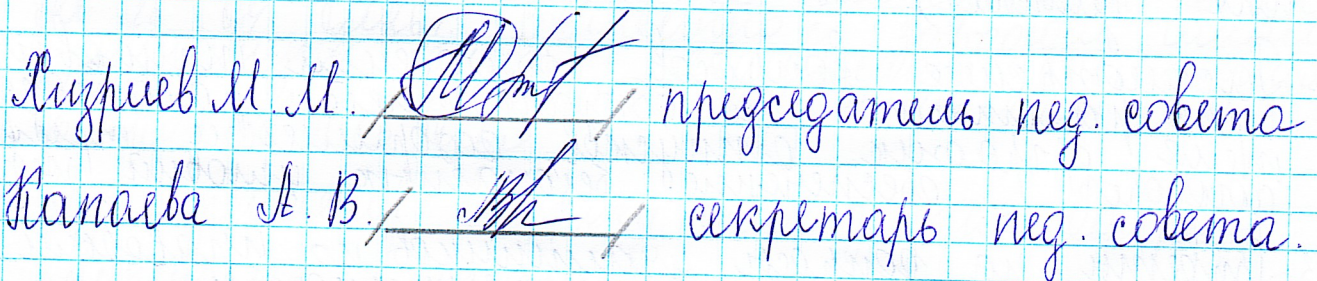 Хизриев М. М. / / председатель пед. совета
Капаева А. В. / / секретарь пед. совета.